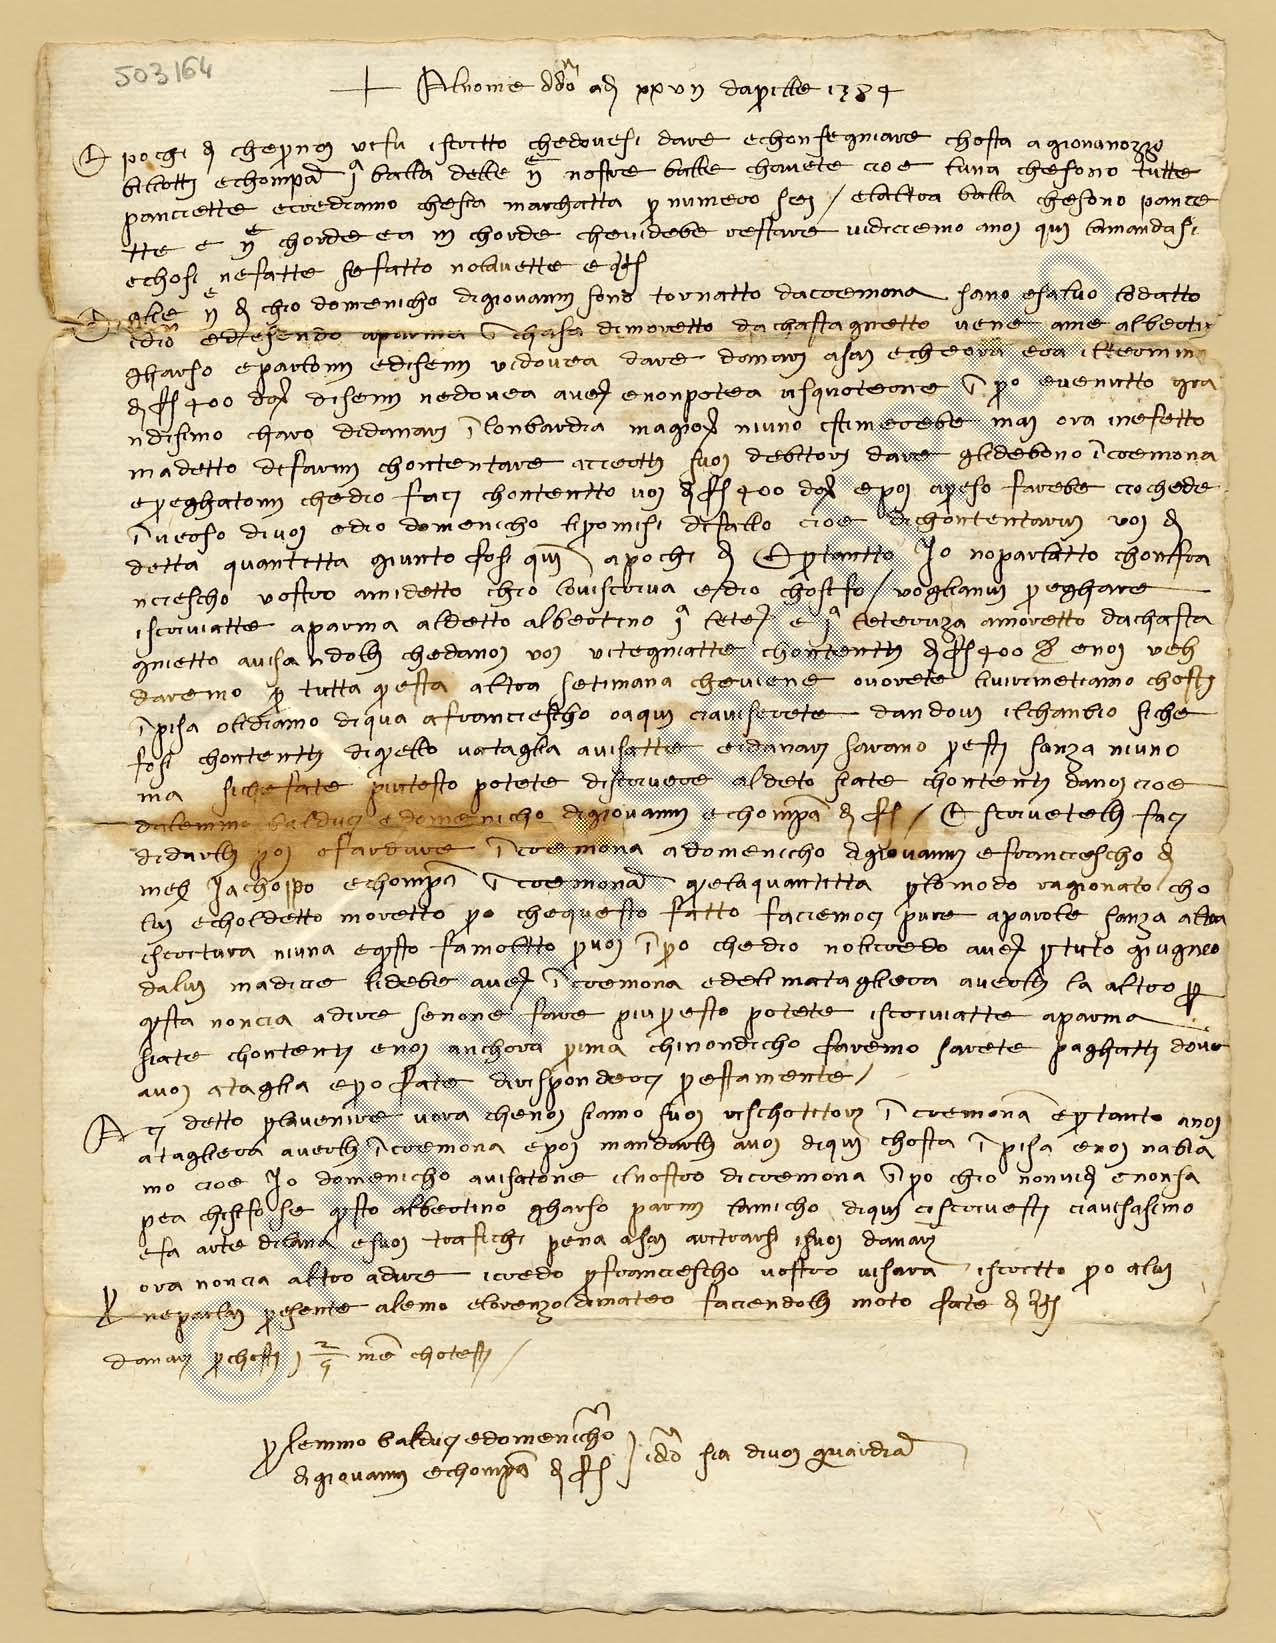 503164
+ Al nome ddo adi xxvii daprille 1384
pochi di che per noi vi fu iscritto che dovesi dare e chonsegniare chosta a giovanozzo
bilotti e chompa 1a balla delle ii nostre balle chavete cioe luna che sono tutte
panciette e crediamo che sia marchatta per numero sei / e laltra balla che sono pance
tte e ii chorde e a in chorde che vi debe restare vi diciemo a noi qui la mandasi
e chosi ne fatte se fatto no lavette e
di chio domenicho di giovanni sono tornatto da cremona sano e salvo lodatto
idio ed esendo a parma in chasa di moretto da chastagnetto vene a me albertin
gharso e parlomi e disemi vi dovea dare danari asai e che ora era il termin
di fs 400 dor disemi ne dovea aver e non potea risquotere in pero e venutto gra
ndisimo charo di danari in lonbardia magior niuno istimerebe mai ora in efetto
m a detto di farmi chontentare a cierti suoi debitori dare gli debono in cremona
e preghatomi che dio faci chontentto voi di fs 400 dor e poi apreso farebe cio che de
in verso di voi ed io domenicho li promisi di fallo cioe di chontentarvi voi di
detta quantitta giunto fosi qui a pochi di E per tantto Io no parlatto chon fra
nciescho vostro a mi detto chio lo vi scriva e dio chosi fo / vogliamvi preghare
iscriviatte a parma al detto albertino 1a letera e 1a leteruza a moretto da chasta
gnietto avisandolli che da noi voi vi tegniatte chontenti di fs 400 e noi velli
daremo per tutta questa altra setimana che viene o vorete li vi rimetiamo chosti
in pisa o li diamo di qua a franciescho o a qui ci aviserete dandovi il chanbio siche
fosi chontenti di quello va taglia avisatte e i danari sarano presti sanza niuno
ma siche fate piu tosto potete di scrivere al deto siate chontenti da noi cioe
da lemmo balduci e domenicho di giovanni e chompa di fs / E scrivetelli faci
di darlli poi o fardare in cremona a domenicho di giovanni e franciescho di
mes Jachoppo e chompa in cremona quela quantitta per lo modo ragionato cho
lui e chol detto moretto pero che questo fatto faciemoci pure a parole sanza altra
iscritura niuna e questo fa molto per voi in pero che dio no li credo aver per tuto giugnio
da lui m a dire li debe aver in cremona ed e li m a tagliera averlli la altro per
questa non ci a a dire se none fare piu presto potete iscriviatte a parma
siate chontenti e noi anchora prima chi non dicho faremo sarete paghatti dove
a voi a taglia e pero fate di risponderci prestamente /
detto per lavenire vora che noi siamo suoi rischotitori in cremona e per tanto a noi
a tagliera averlli in cremona e poi mandarlli a voi di qui chosta in pisa e noi nabia
mo cioe Io domenicho avisatone il nostro di cremona in pero chio non vidi e non sa
pea chi si fose questo albertino gharso parmi lamicho di qui ci scrivesti ci avisasimo
e fa arte di lana e suoi trafichi pena asai a ritrarsi i suoi danari
ora non ci a altro a dire i credo per franciescho vostro vi sara iscritto pero a lui
ne parlai presente a lemo e lorenzo di mateo faciendolli moto fate di
danari per chosti
per lemmo balduci e domenicho
di giovanni e chompa di fs / iddo sia di voi guardia